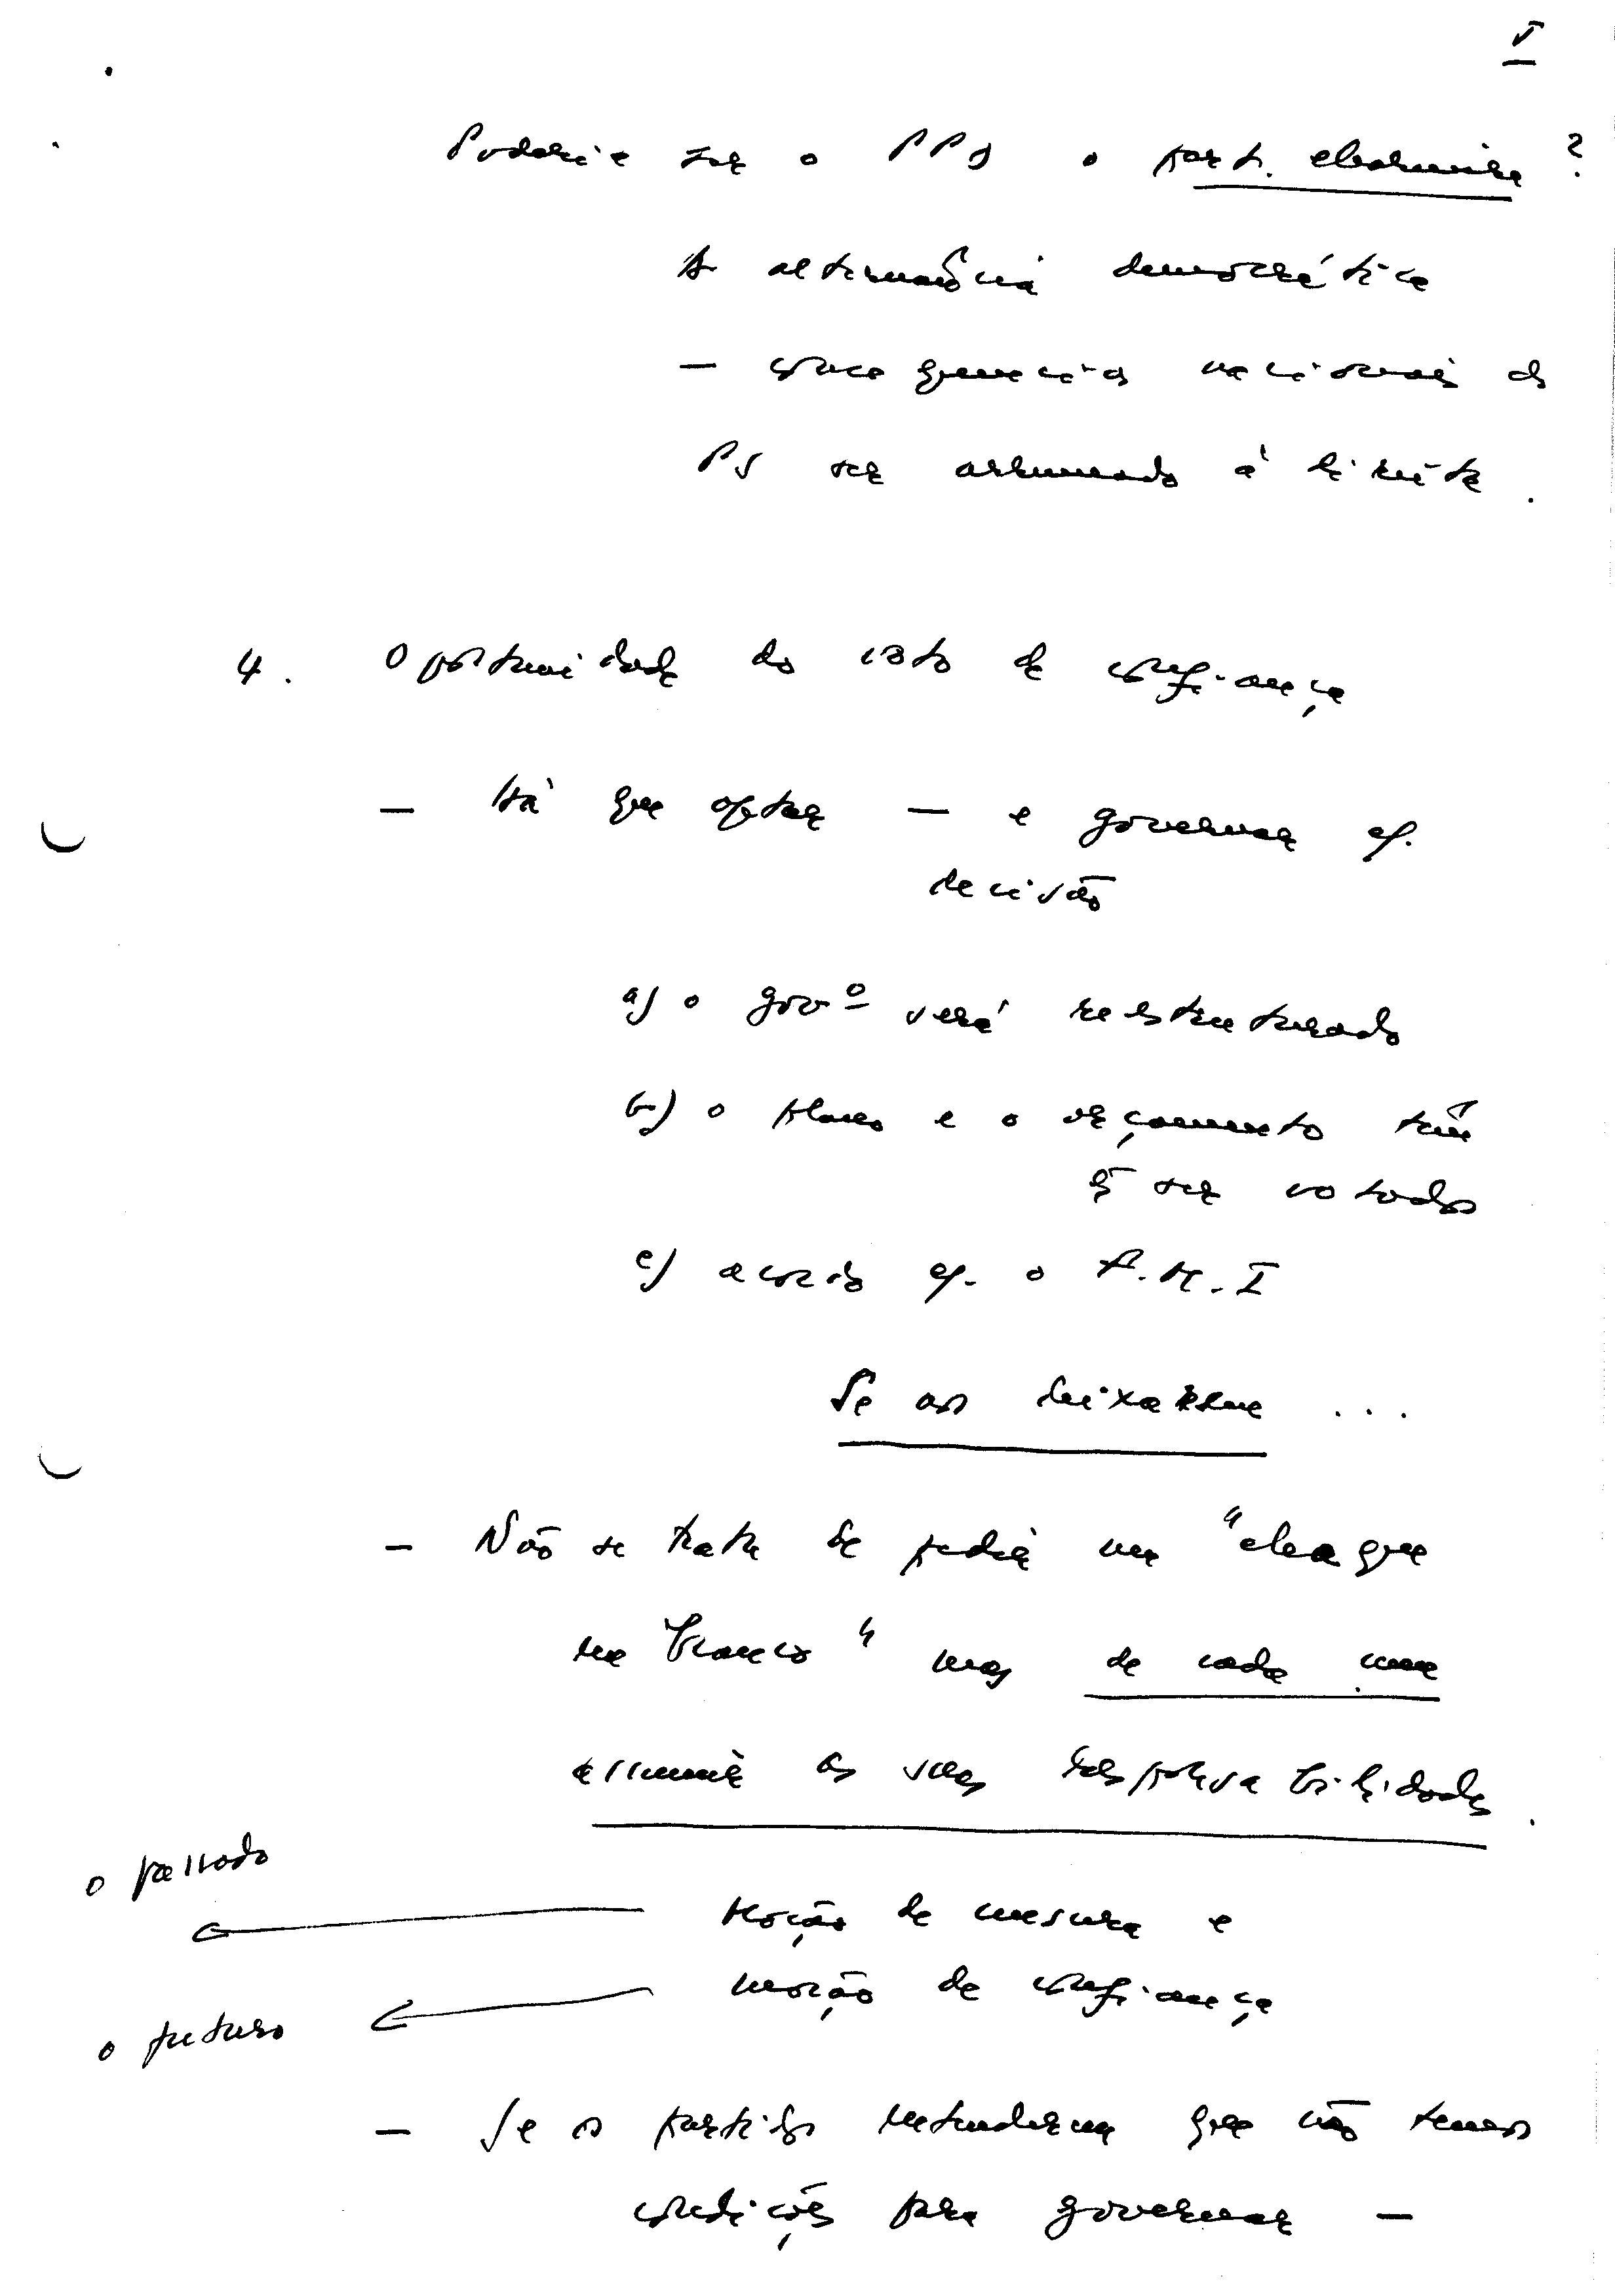 V
Poderia ser o PPD o part. charneira ?
A alternância democrática
— consequencias nacionais do
PS ser arrumado à direita .
4 . Oportunidade do voto de confiança
— Há que optar — e governar c/.
decisão
a) o govº será reestruturado
b) o plano e o orçamento têm
q̃ ser votados
c) acordo c/. o F.M.I
Se os deixarem . . .
— Não se trata de pedir um "cheque
em branco" mas de cada um
assumir as suas responsabilidades .
o passado
Moção de censura e
moção de confiança
o futuro
— Se os partidos entenderem que não temos
condições para governar —